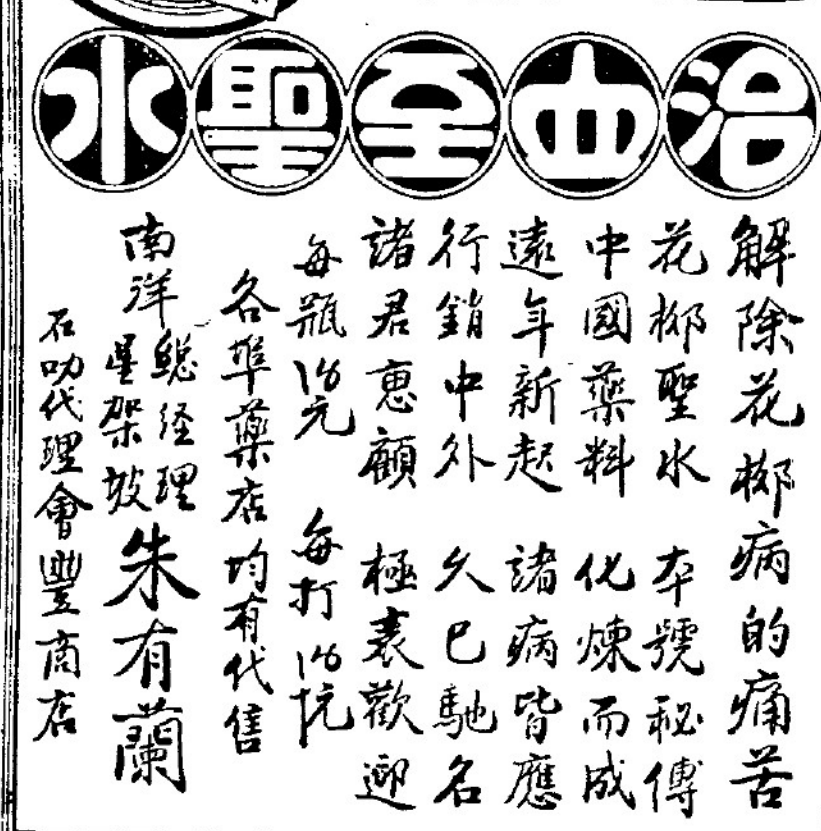 治血至聖水
解除花柳病的痛苦
花柳聖水 本號秘傳
中國藥料 化煉而成
遠年新起 諸病皆應
行銷中外 久已馳名
諸君惠顧 極表歡迎
每瓶 元 每打
各埠藥店均有代售
南洋
總経理
星架坡
朱有蘭
石叻代理會豐商店